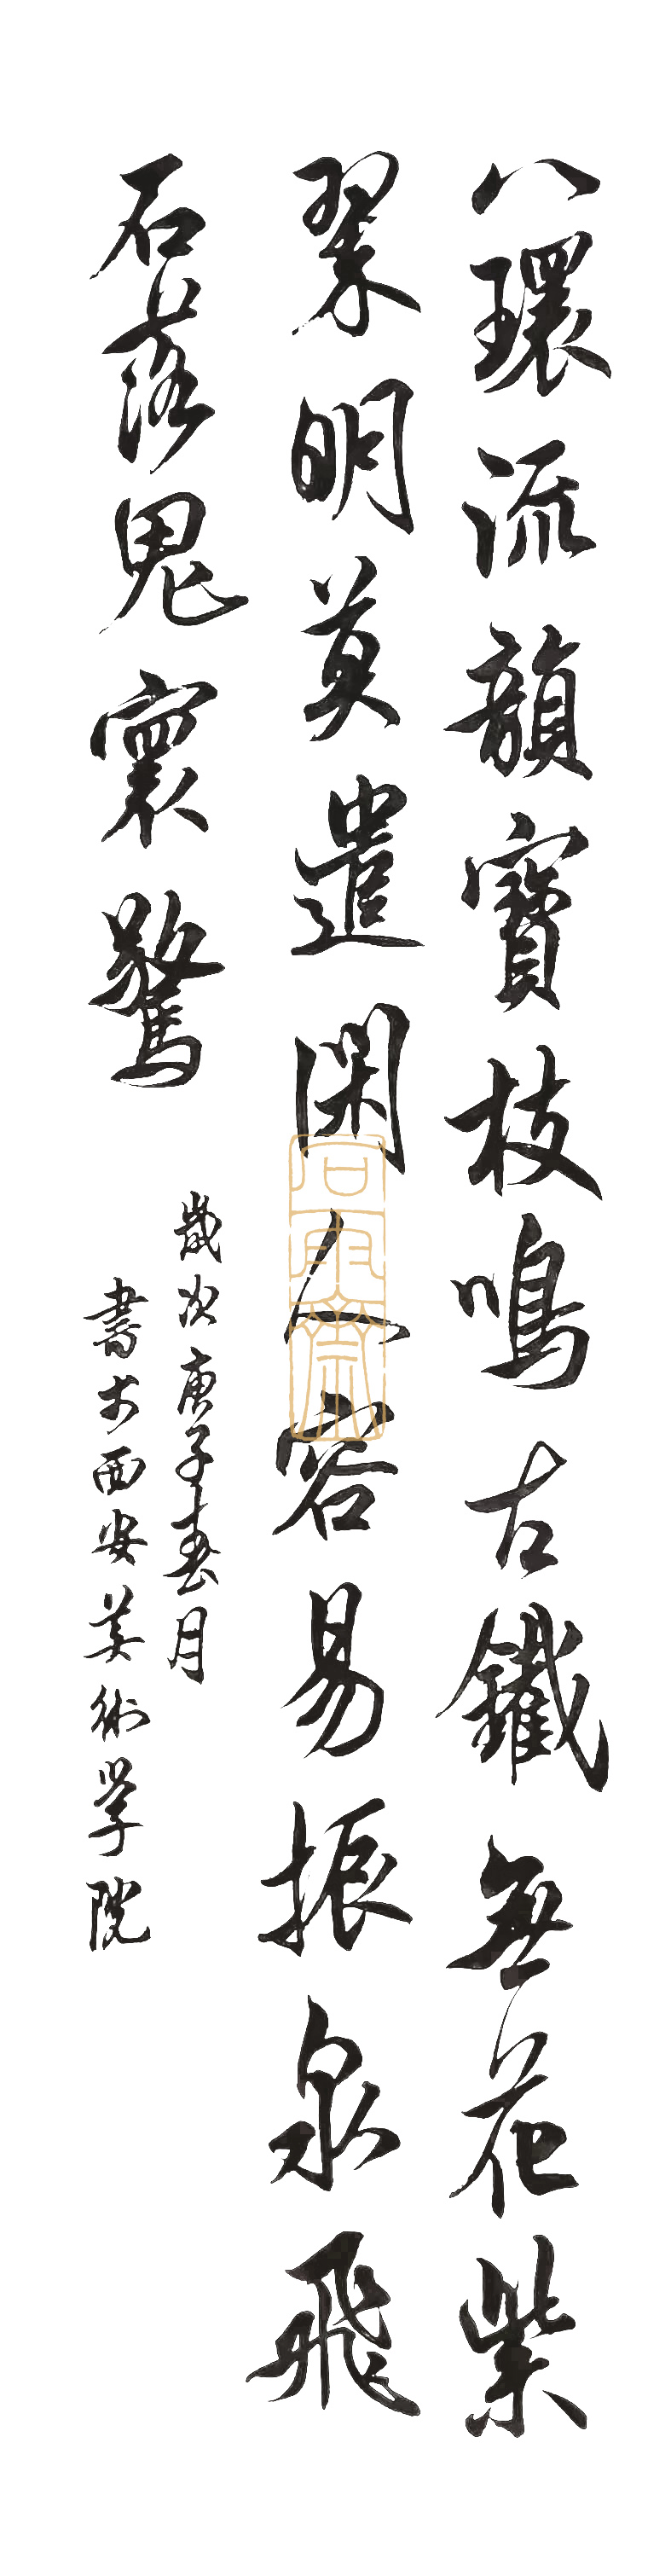 八環流韻寶枝鳴古鐵無花紫
翠明莫遣閑人容易振泉飛
石落鬼寰驚
歲次庚子春月
書於西安美術学院